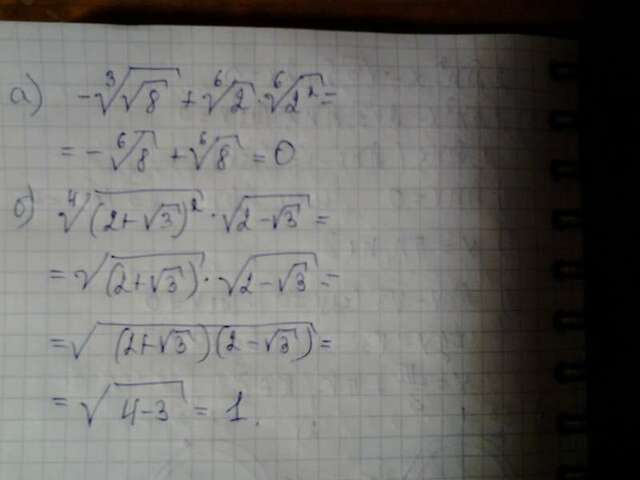 а) -∛√8 + ⁶√2 · ⁶√2² =
= - ⁶√8 + ⁶√8 = 0
б) ⁴√(2+√3)² · √(2-√3) =
= √(2+√3) · √(2-√3) =
= √((2+√3)(2-√3)) =
= √(4-3) = 1.